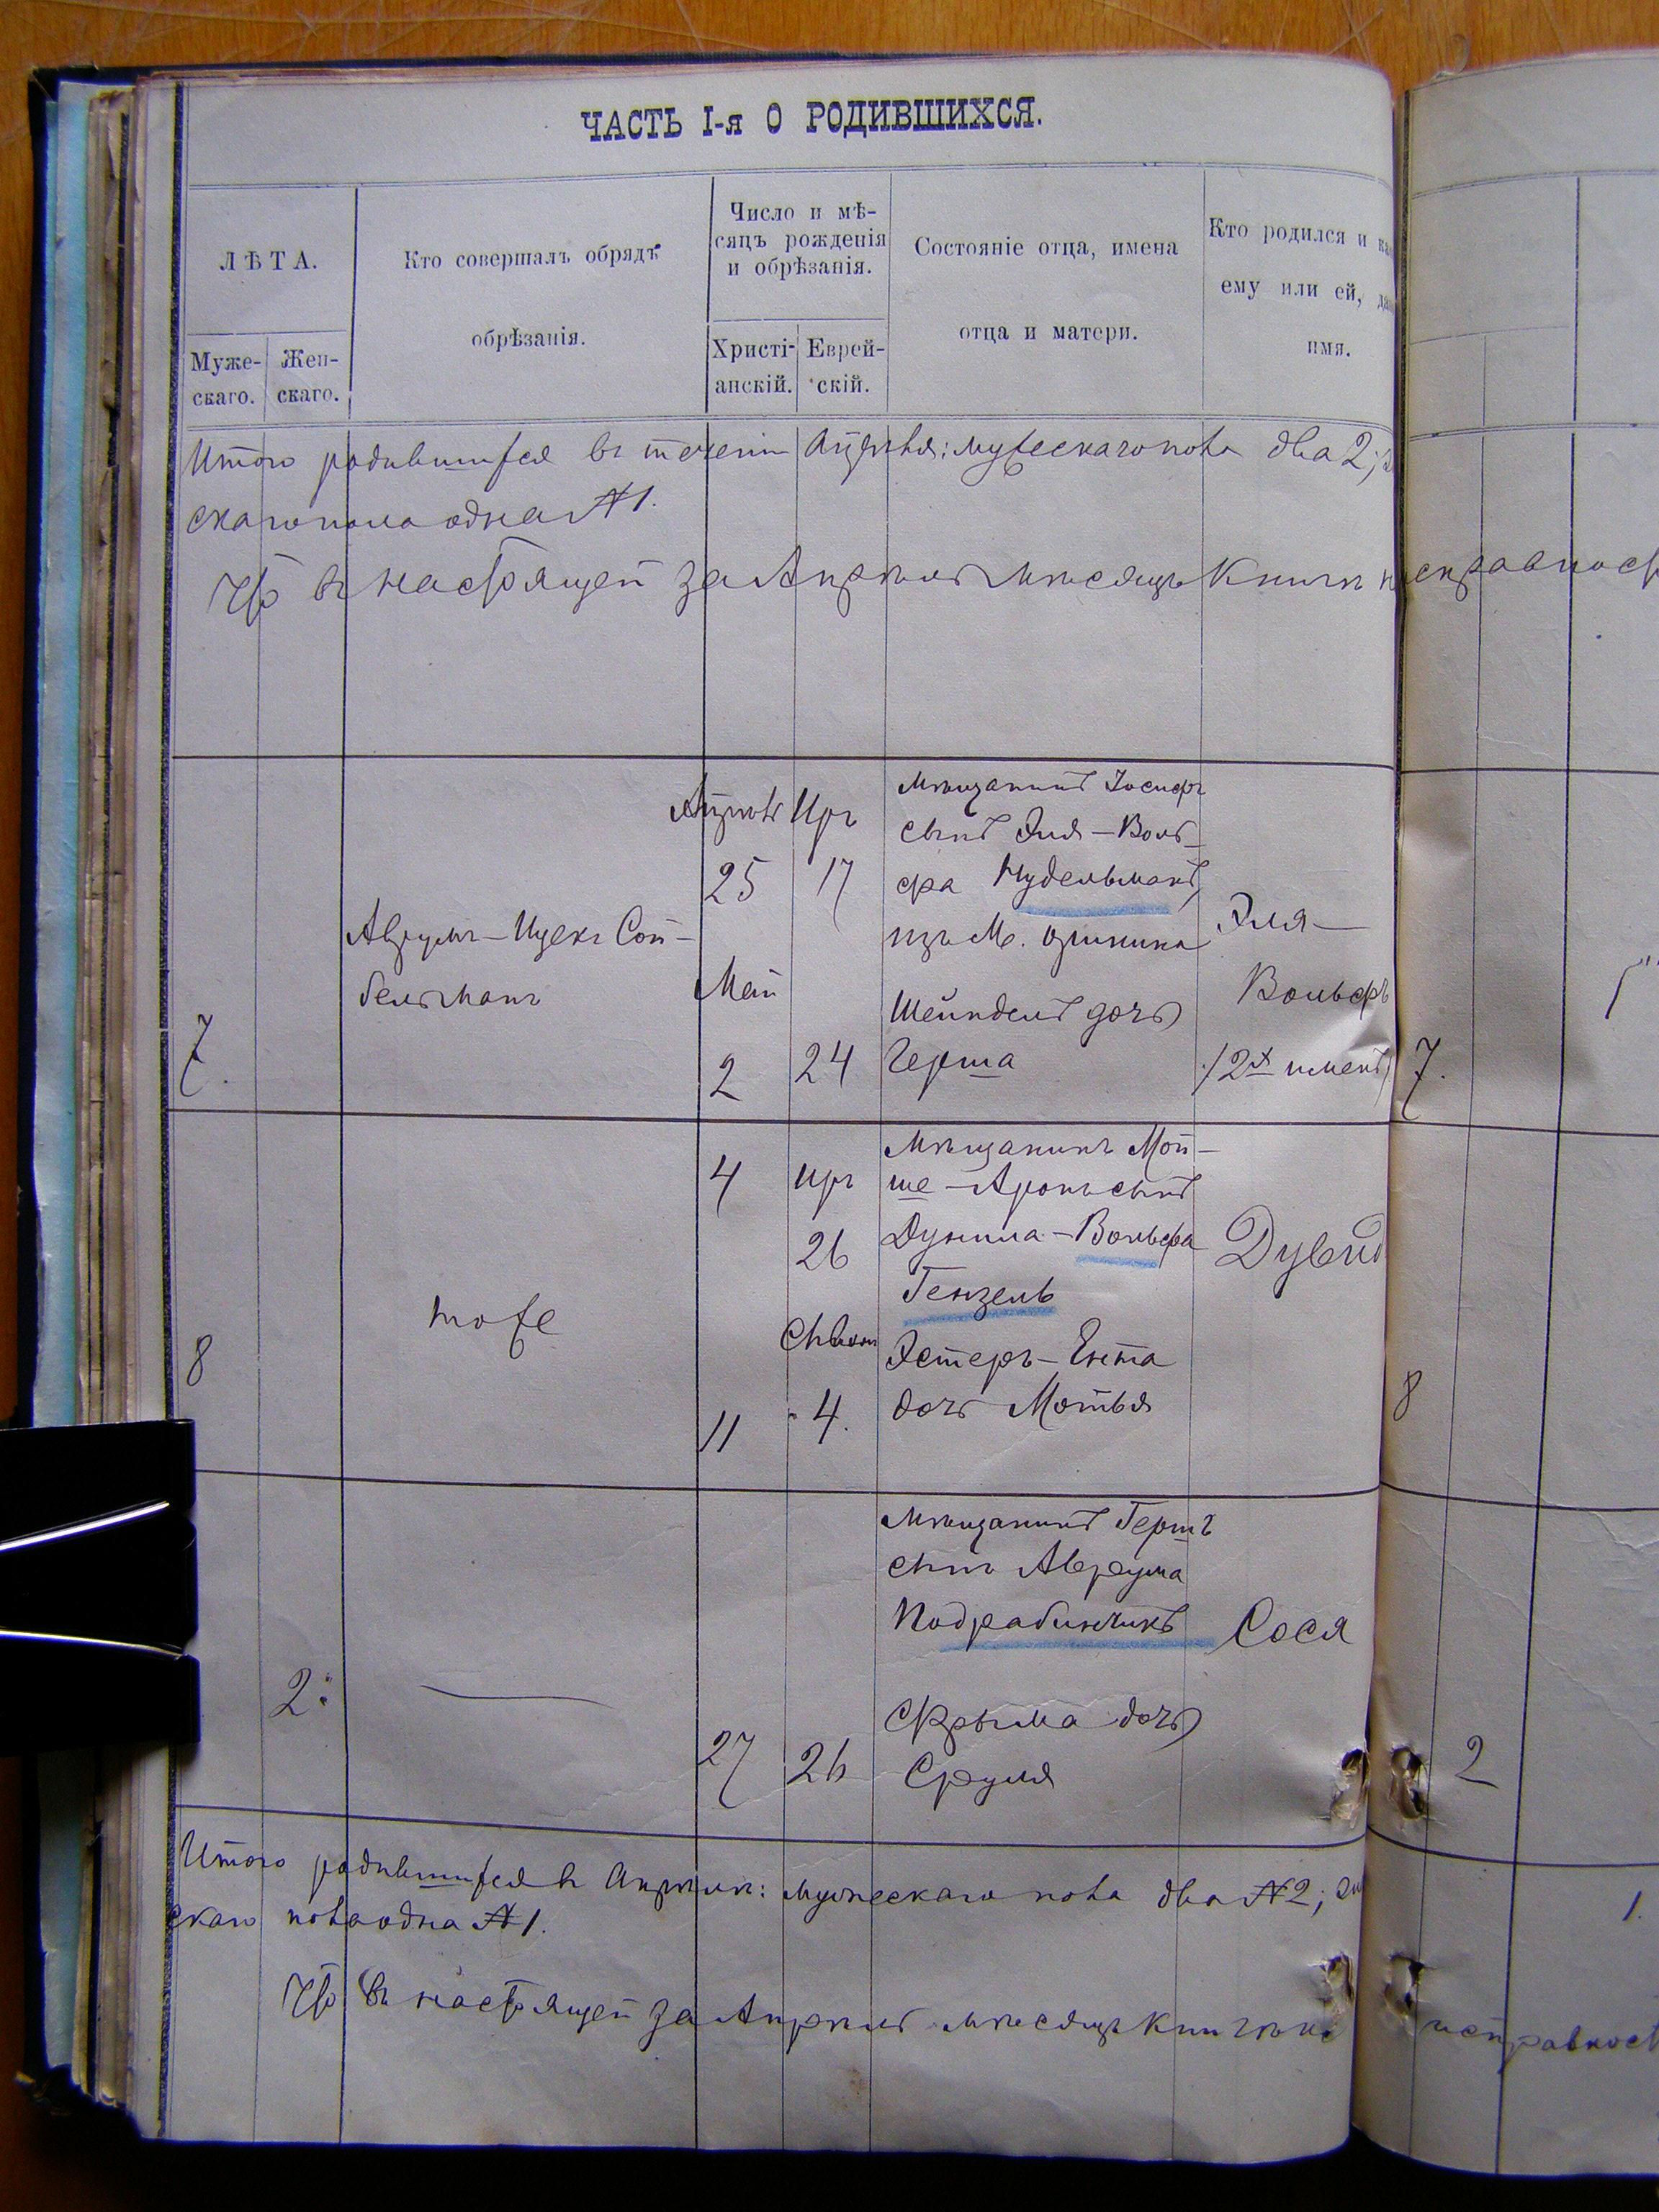 ЧАСТЬ I-я О РОДИВШИХСЯ.
ЛѢТА.
Муже-
скаго.
Жен-
скаго.
Кто совершалъ обрядъ
обрѣзанія.
Число и мѣ-
сяцъ рожденія
и обрѣзанія.
Христі-
анскій.
Еврей-
скій.
Состояніе отца, имена
отца и матери.
Кто родился и
ему или ей,
имя.
Итого родившихся въ теченіи Апрѣля: мужескаго пола два 2;
скаго пола одна № 1.
Что въ настоящей за Апрѣль мѣсяцъ книгѣ неисправност
7.
Аврумъ-Ицекъ Сой-
бельманъ
Апрѣль
25
Май
2
Иръ
17
24
Мѣщанинъ Іосифъ
сынъ Эля-Воль-
фа Нудельманъ,
изъ М.
Шейндель дочь
Герша
Эля-
Вольфъ
/2хъ именъ/
7.
8
тоже
4
11
Иръ
26
Сывонъ
4.
Мѣщанинъ Мой-
ше-Аронъ сынъ
Дунила-Вольфа
Гензель
Эстеръ-Ента
дочь Мотья
Дувид
8
2
27
26
Мѣщанинъ Гершъ
сынъ Аврума
Подрабинчикъ
дочь
Сруля
Сося
2
Итого родившихся въ Апрѣлѣ: мужескаго пола два № 2;
скаго пола одна № 1.
1.
Что въ настоящей за Апрѣль мѣсяцъ книгѣ не исправност